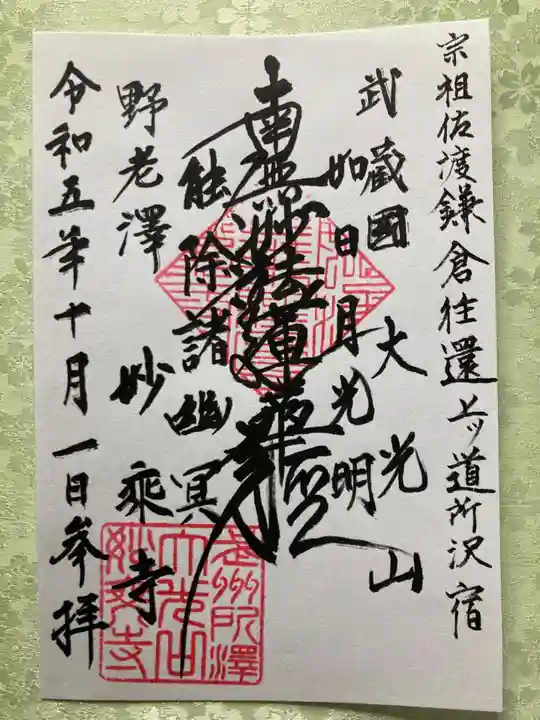 宗祖佐渡鎌倉往還上ッ道所沢宿
武蔵國 大光山
如日月光明
南無妙法蓮華経
能除諸幽冥
野老澤 妙乗寺
令和五年十月一日参拝